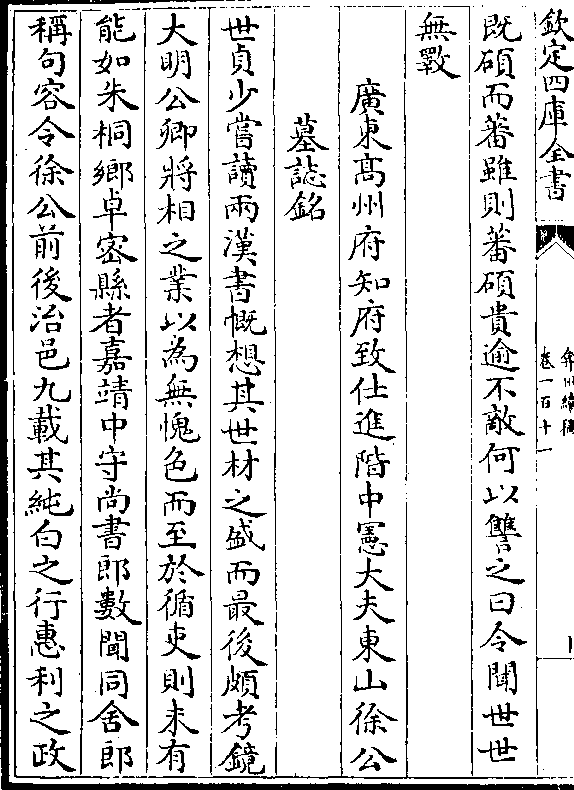 欽定四庫全書
弇州續稿
卷一百十一
既碩而蕃雖則蕃碩貴逾不敵何以讐之曰令聞世世
無斁
廣東高州府知府致仕進階中憲大夫東山徐公
墓誌銘
世貞少嘗讀兩漢書慨想其世材之盛而最後頗考鏡
大明公卿將相之業以為無愧色而至於循吏則未有
能如朱桐鄉卓密縣者嘉靖中守尚書郎數聞同舍郎
稱句容令徐公前後治邑九載其純白之行惠利之政